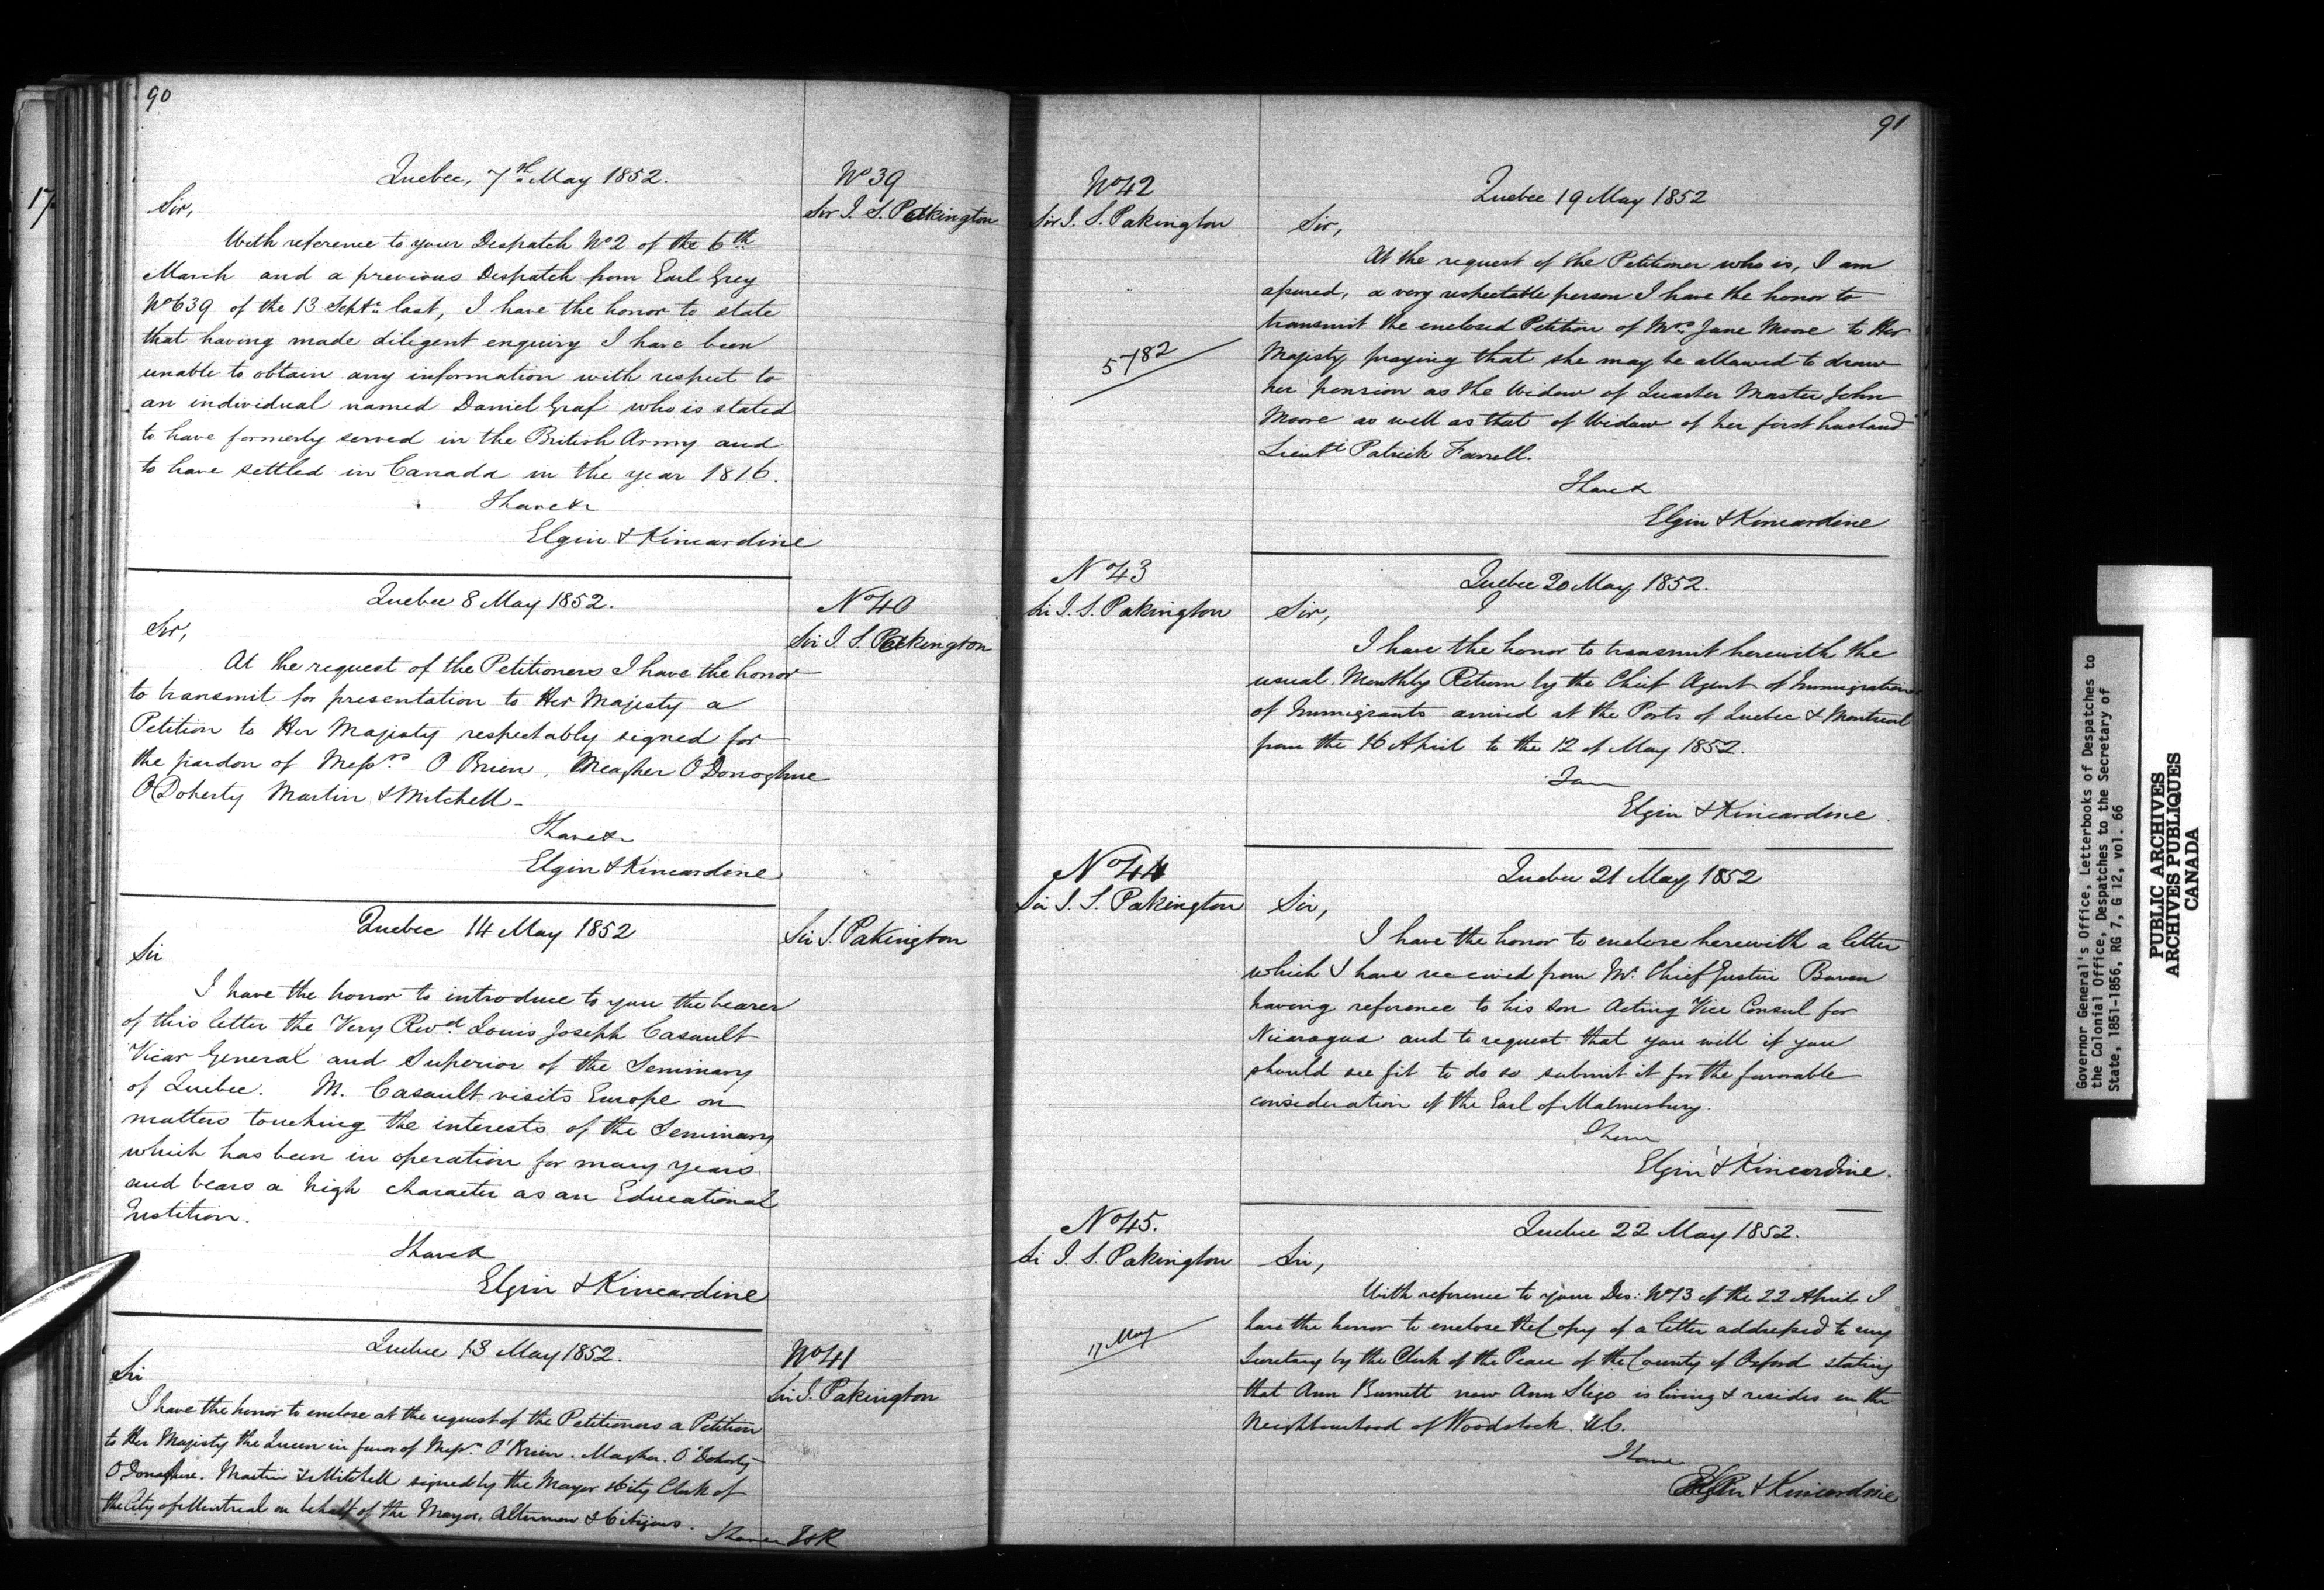 90
Quebec, 7th May 1852.
No 39
Sir J. S. Pakington
Sir,
With reference to your Despatch No 2 of the 6th
March and a previous Despatch from Earl Grey
No 639 of the 13 Septr last, I have the honor to state
that having made diligent enquiry I have been
unable to obtain any information with respect to
an individual named Daniel Graf who is stated
to have formerly served in the British Army and
to have settled in Canada in the year 1816.
I have &c
Elgin & Kincardine
Quebec 8 May 1852.
No 40
Sir J. S. Pakington
Sir,
At the request of the Petitioners I have the honor
to transmit for presentation to Her Majesty a
Petition to Her Majesty respectably signed for
the pardon of Messrs O Brien, Meagher O'Donoghue
O'Doherty Martin & Mitchell-
I have &c
Elgin & Kincardine
Quebec 14 May 1852
Sir J. Pakington
Sir
I have the honor to introduce to you the bearer
of this letter the Very Revd Louis Joseph Casault
Vicar General and Superior of the Seminary
of Quebec. M. Casault visits Europe on
matters touching the interests of the Seminary
which has been in operation for many years
and bears a high character as an Educational
Instition.
I have &
Elgin & Kincardine
Quebec 13 May 1852.
No 41
Sir J. Pakington
Sir
I have the honor to enclose at the request of the Petitioners a Petition
to Her Majesty the Queen in favor of Messrs O'Brien. Magher. O'Doherty
O'Donoghue. Martin & Mitchell signed by the Mayor & City Clerk of
the City of Montreal on behalf of the Mayor, Altermen & Citizens.
I have E&K
91
No 42
Sir J. S. Pakington
Quebec 19 May 1852
Sir,
At the request of the Petitioner who is, I am
assured, a very respectable person I have the honor to
transmit the enclosed Petition of Mrs Jane Moore to Her
5782
Majesty praying that she may be allowed to draw
her pension as the Widow of Quarter Master John
Moore as well as that of Widow of her first husband
Lieutt Patrick Farrell.
I have &
Elgin & Kincardine
No 43
Sir J. S. Pakington
Quebec 20 May 1852.
Sir,
I have the honor to transmit herewith the
usual Monthly Return by the Chief Agent of Immigration
of Immigrants arrived at the Ports of Quebec & Montreal
from the 16 April to the 12 of May 1852.
I am
Elgin & Kincardine
No 44
Sir J. S. Pakington
Quebec 21 May 1852
Sir,
I have the honor to enclose herewith a letter
which I have received from Mr. Chief Justice Bowen
having reference to his son Acting Vice Consul for
Nicaragua and to request that you will if you
should see fit to do so submit it for the favorable
consideration of the Earl of Malmesbury.
I have
Elgin & Kincardine.
No 45.
Sir J. S. Pakington
Quebec 22 May 1852.
Sir,
With reference to your Des: No 13 of the 22 April I
have the honor to enclose the Copy of a letter addressed to my
17 May
Secretary by the Clerk of the Peace of the County of Oxford stating
that Ann Burnett now Ann Sligo is living & resides in the
Neighbourhood of Woodstock. U.C.
I have
Elgin & Kincardine
17
Governor General's Office, Letterbooks of Despatches to
the Colonial Office, Despatches to the Secretary of
State, 1851-1856, RG 7, G 12, vol. 66
PUBLIC ARCHIVES
ARCHIVES PUBLIQUES
CANADA